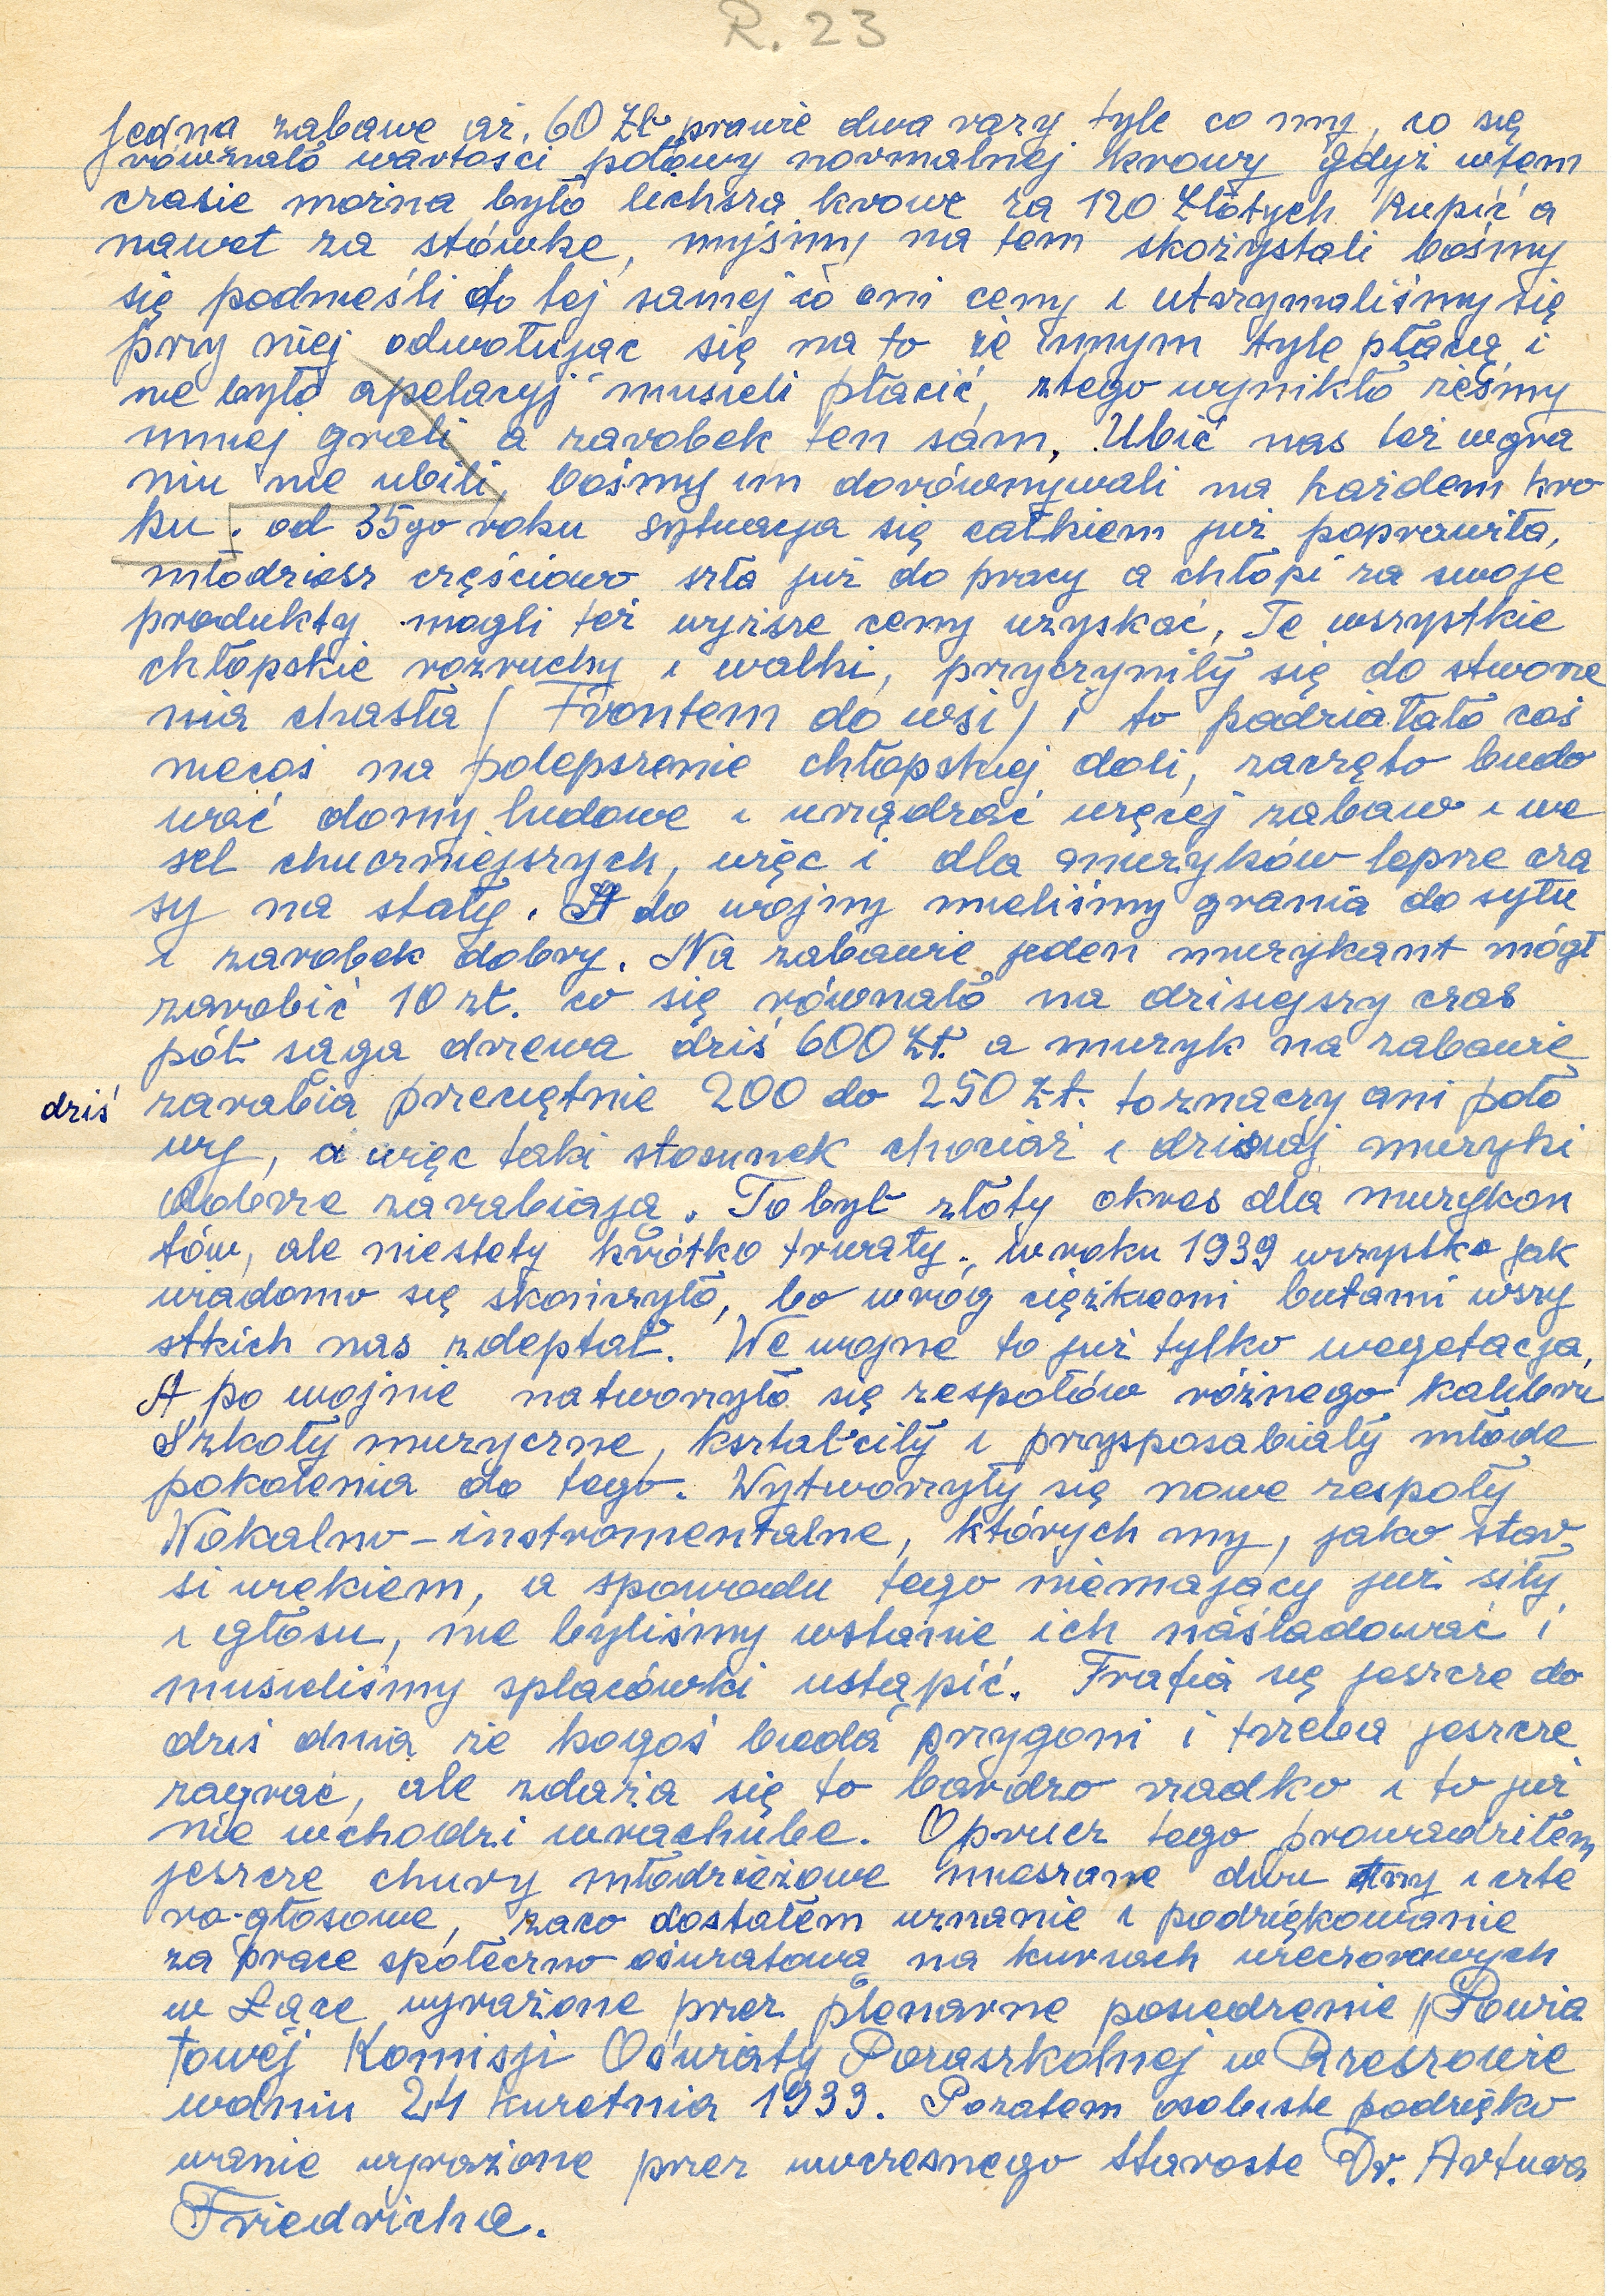 R. 23
jedna zabawe aż, 60 Zł prawie dwa razy tyle co my, co się
równało wartości połowy normalnej krowy gdyż wtem
czasie można było lichsza krowe za 120 Złotych kupić a
nawet za stówke, myśmy na tem skożystali bośmy
się podnieśli do tej samej co oni ceny i utszymaliśmy się
przy niej odwołując się na to że innym tyle płacą i
nie było apelacyj musieli płacić, ztego wynikło żeśmy
mniej grali a zarobek ten sam. Ubić nas też wgra
niu nie ubili, bośmy im dorównywali na każdem kro
ku. od 35go roku sytuacja się całkiem już poprawiła,
młodziesz częściowo szła już do pracy a chłopi za swoje
produkty mogli też wyższe ceny uzyskać, Te wszystkie
chłopskie rozruchy i walki, przyczyniły się do stworze
nia chasła / Frontem do wsi / i to podziałało coś
niecoś na polepszenie chłopskiej doli, zaczęto budo
wać domy ludowe i urządzać więcej zabaw i we
sel chuczniejszych, więc i dla muzyków lepsze cza
sy na stały. A do wojny mieliśmy grania do sytu
i zarobek dobry. Na zabawie jeden muzykant mógł
zarobić 10 zł. co się równało na dzisiejszy czas
pół saga drzewa dziś 600 Zł. a muzyk na zabawie
dziś zarabia przeciętnie 200 do 250 Zł. to znaczy ani poło
wy, a więc taki stosunek chociaż i dzisiaj muzyki
dobrze zarabiają. To był złoty okres dla muzykan
tów, ale niestety krótko trwały., w roku 1939 wszystko jak
wiadomo się skończyło, bo wróg ciężkiemi butami wszy
stkich nas zdeptał. We wojne to już tylko wegetacja,
A po wojnie natworzyło się zespołów różnego kalibru
Szkoły muzyczne, kształciły i przysposabiały młode
pokolenia do tego. Wytworzyły się nowe zespoły
Wokalno-instromentalne, których my, jako star
si wiekiem, a spowodu tego niemający już siły
i głosu, nie byliśmy wstanie ich naśladować i
musieliśmy splacówki ustąpić. Trafia się jeszcze do
dziś dnia że kogoś bieda przygoni i trzeba jeszcze
zagrać, ale zdaża się to bardzo rzadko i to już
nie wchodzi wrachube. Oprucz tego prowadziłem
jeszcze chury młodzieżowe mieszane dwu trzy i czte
ro-głosowe, zaco dostałem uznanie i podziękowanie
za prace społeczno oświatową na kursach wieczorowych
w Łące wyrażone przez plenarne posiedzenie Powia
towej Komisji Oświaty Pozaszkolnej w Rzeszowie
wdniu 24 kwietnia 1933. Pozatem osobiste podzięko
wanie wyrażone przez uwczesnego Staroste Dr. Artura
Friedricha.